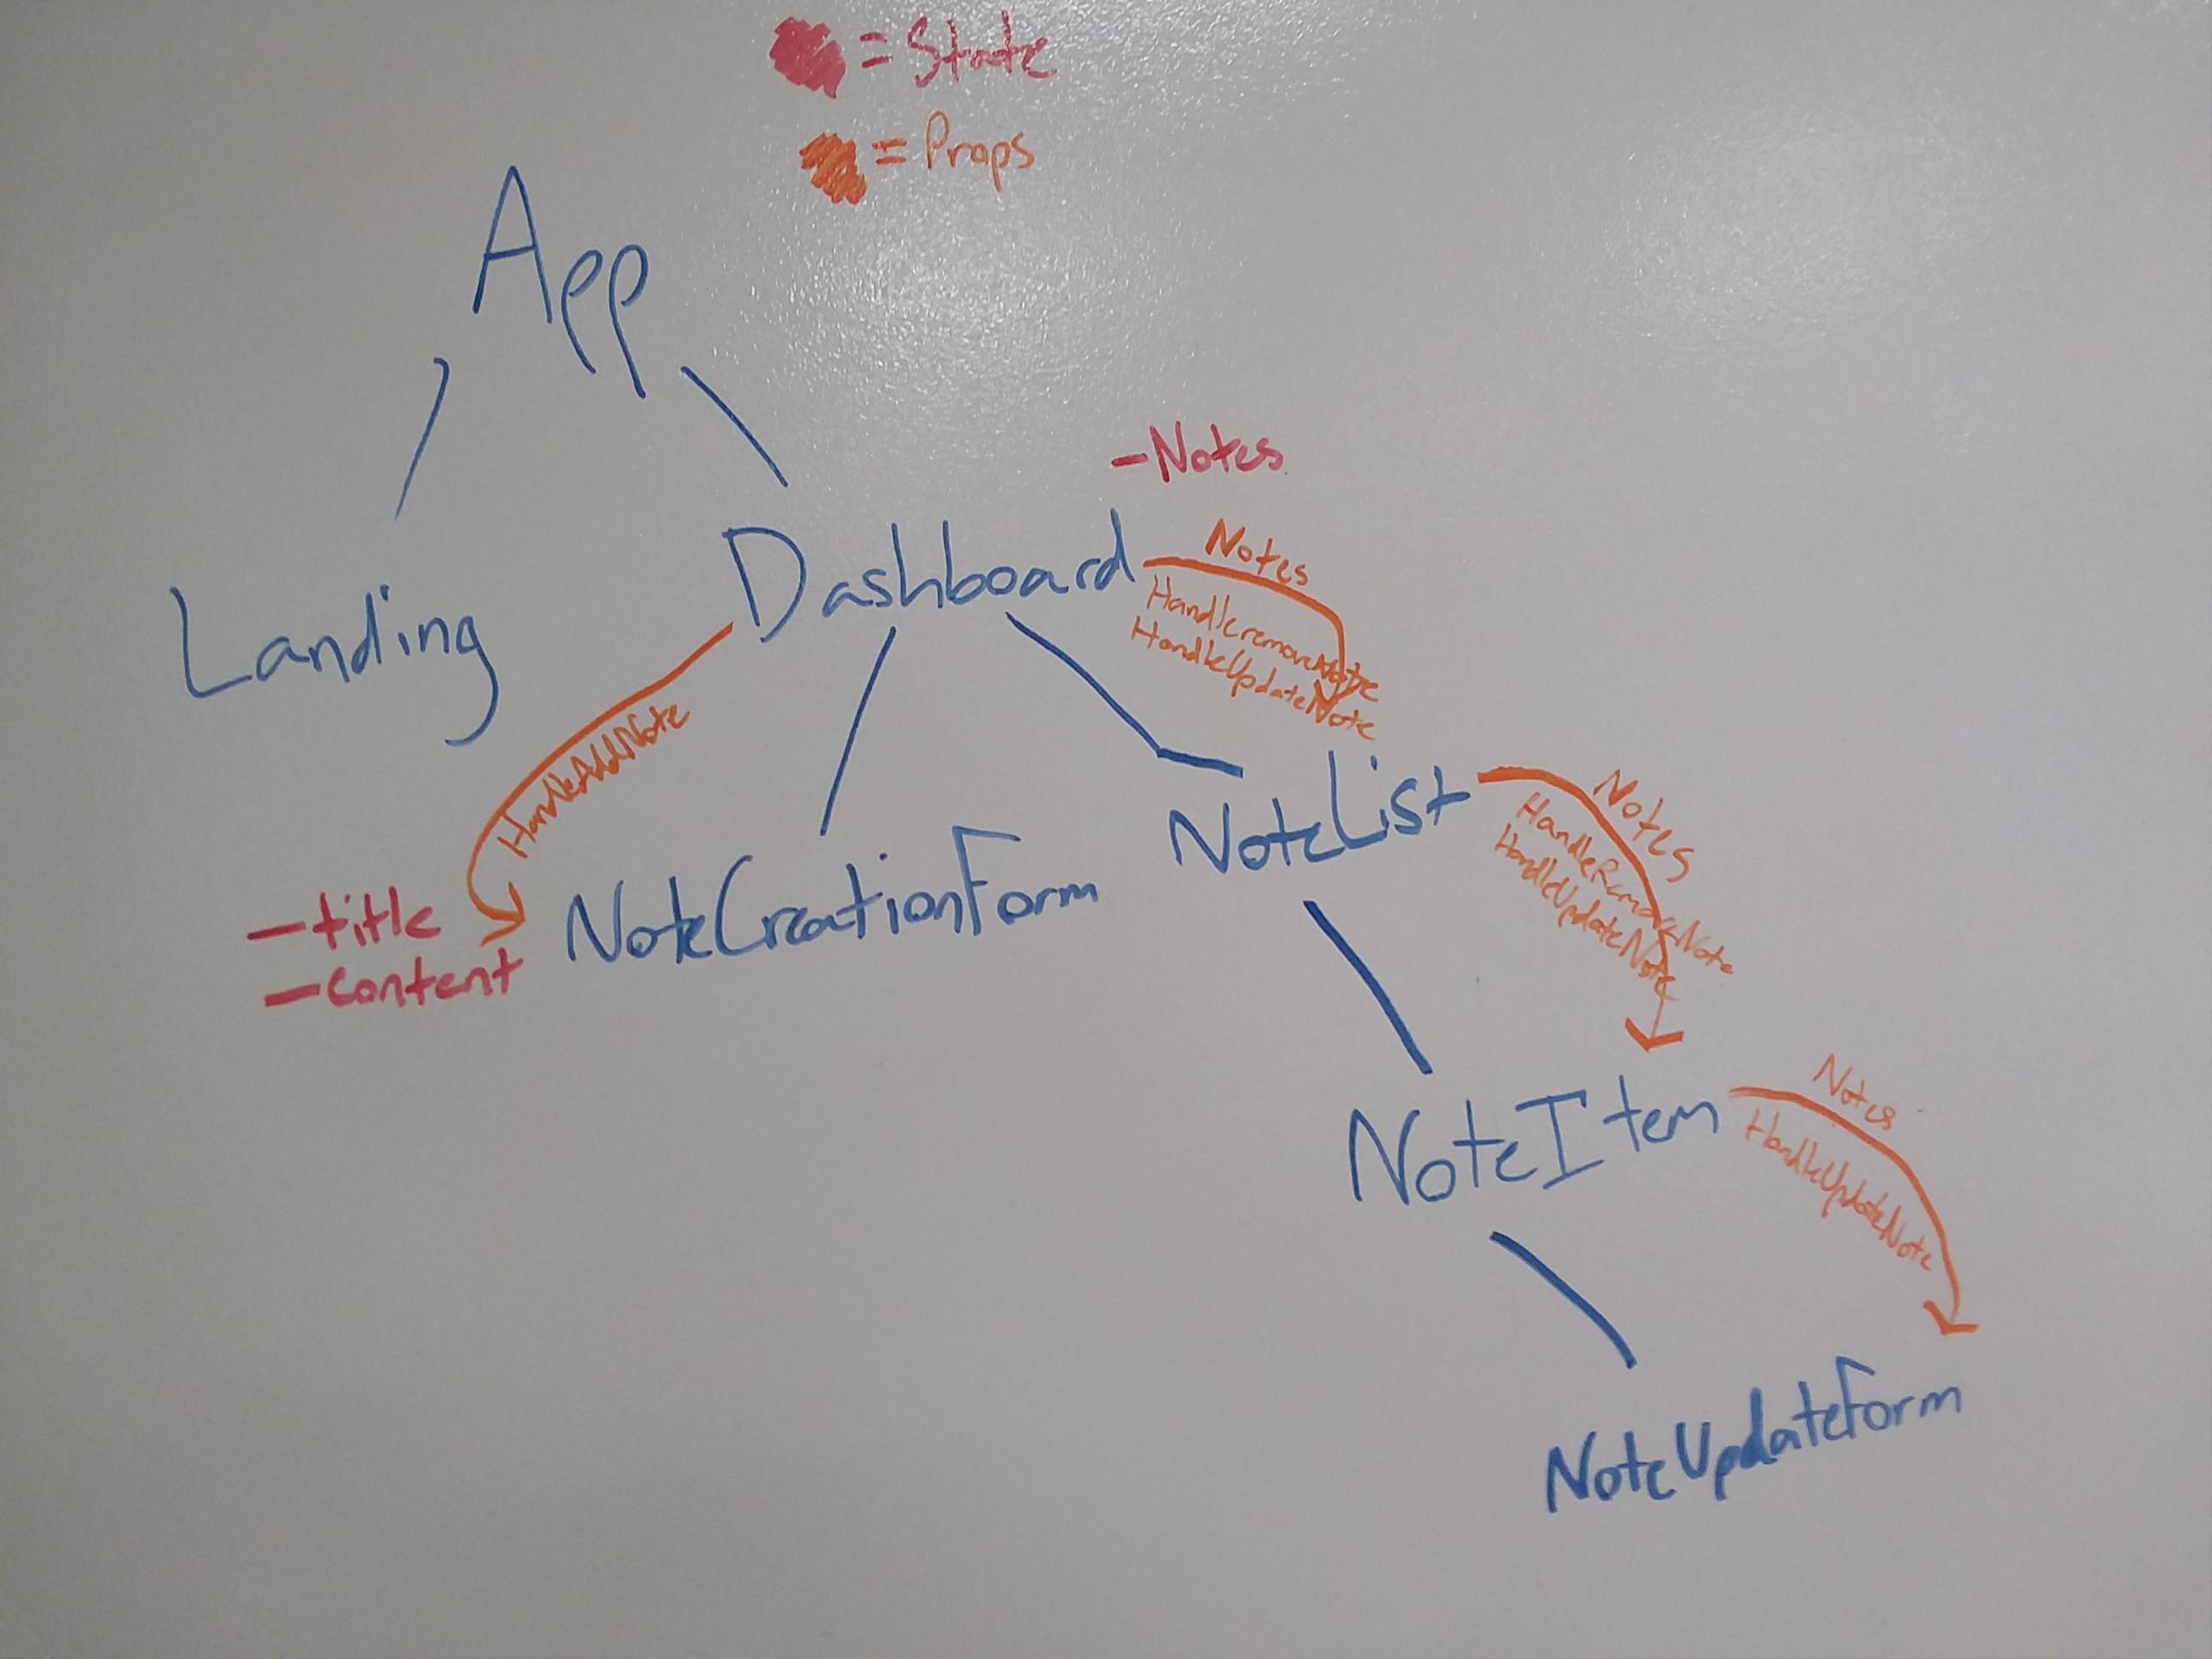 = State
= Props
App
- Notes
Landing
Dashboard
Notes
HandleremoveNote
HandleUpdateNote
HandleAddNote
- title
- content
NoteCreationForm
NoteList
Notes
HandleRemoveNote
HandleUpdateNote
NoteItem
Notes
HandleUpdateNote
NoteUpdateForm